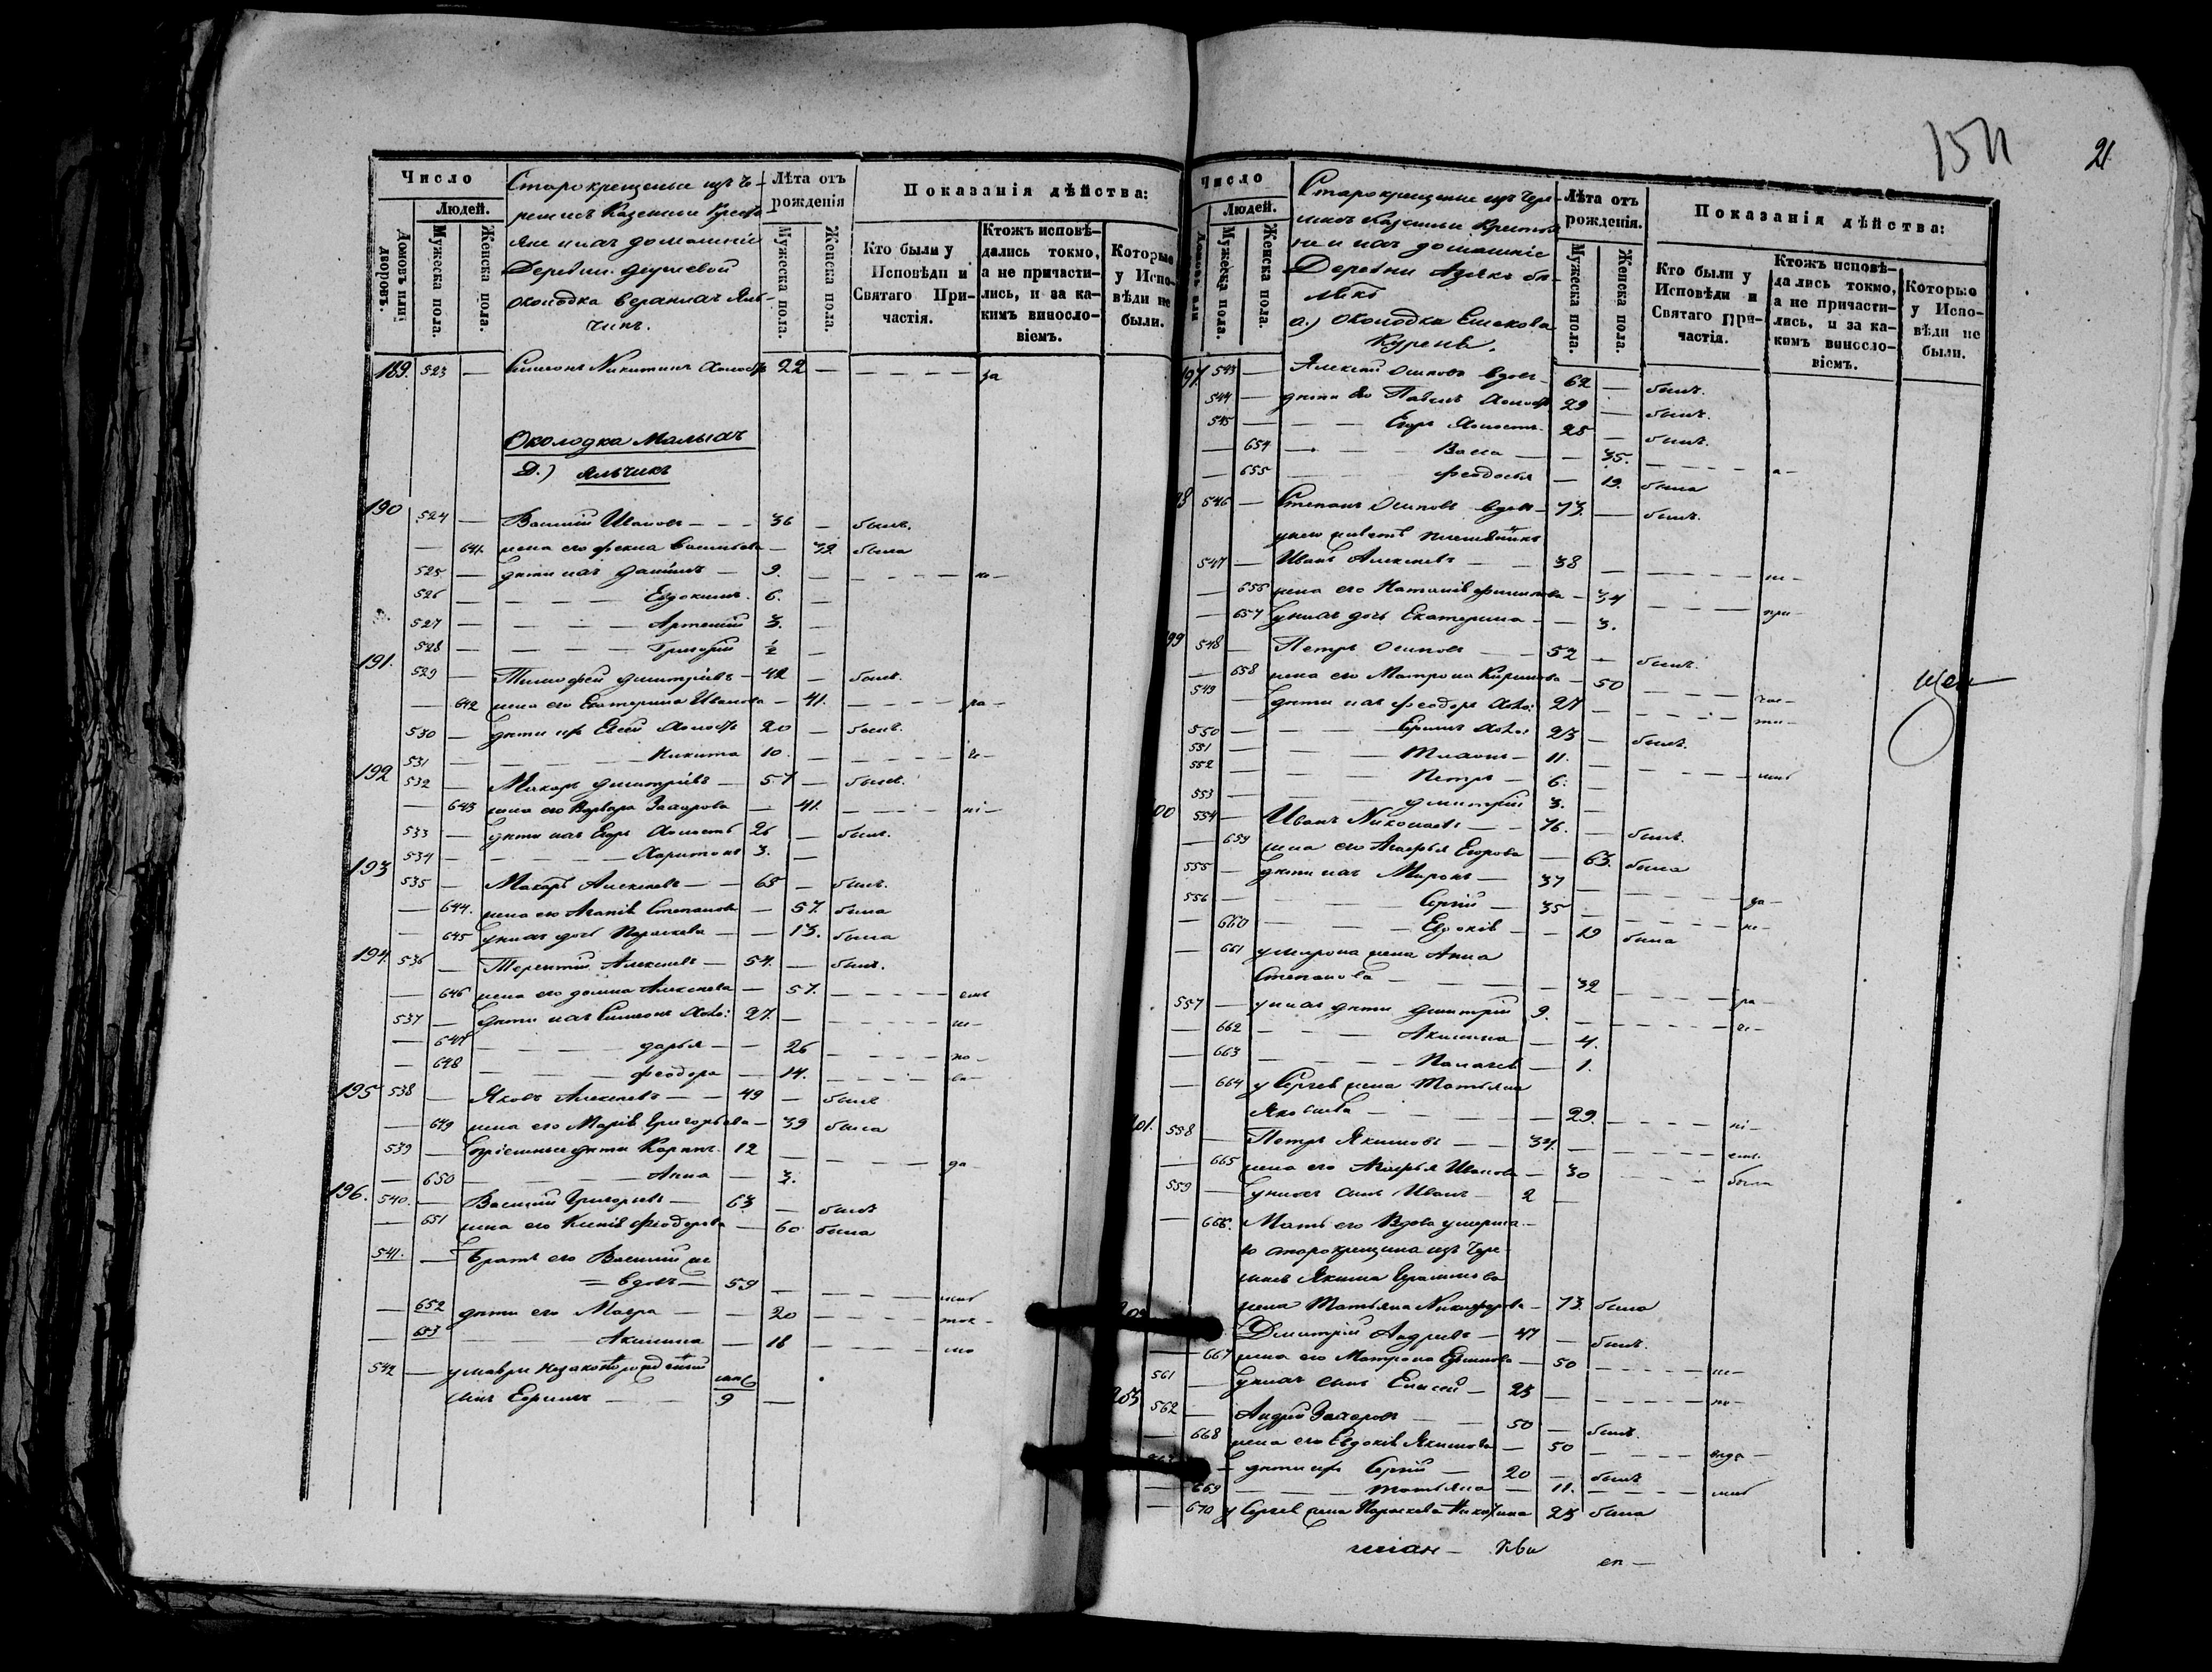 Число
Людей.
Домовъ или дворовъ.
Мужеска пола.
Женска пола.
Старокрещеные изъ Че-
ремисъ Казенные Кресть
яне и ихъ домашніе
Деревни
околодка
Лѣта отъ рожденія
Мужеска пола.
Женска пола.
Показанія дѣйства:
Кто были у Исповѣди и Святаго Причастія.
Ктожъ исповѣдались токмо, а не причастились, и за какимъ винословіемъ.
Которые у Исповѣди не были.
189. 523 — Симеонъ Никитинъ Холостъ 22 — — — — — за
Околодка Малыхъ
Д.) Яльчикъ
190 524 — Василий Ивановъ — — 36 — былъ.
— 641. жена его Фекла Васильева — 32 была
525 — дѣти ихъ Данiилъ — 9. — — — — — не —
526 — — — — Евдокимъ. 6. —
527 — — — — Артемий 3. —
528 — — — — Григорий ½ —
191. 529 — Тимофей Димитріевъ — 42 — былъ.
— 642 жена его Екатерина Иванова — 41. — — — — ра —
530 — дѣти ихъ Елсей Холостъ 20 — былъ.
531 — — — — Никита 10. — — — — —
192 532 — Макаръ Димитріевъ — 57 — былъ.
— 643 жена его Варвара Захарова — 41. — — — — ні —
533 — дѣти ихъ Егоръ Холостъ 26 — былъ.
534 — — — — Харитонъ 3. —
193 535 — Макаръ Алексѣевъ — — 65 — былъ.
— 644. жена его Агапія Степанова — 57. была
— 645 у нихъ дочь Параскева — — 13. была
194. 536 — Терентий Алексѣевъ — 54. — былъ.
— 646 жена его Домна Алексѣева — 57. — — — — емъ
537 — дѣти ихъ Симеонъ Холо: 27. — — — — —
— 647 — — — Дарья — — 26 — — — — по —
— 648 — — — Феодора — 14. — — — —
195 538 — Яковъ Алексѣевъ — — 49 — былъ
— 649 жена его Марія Григорьева — 39 была
539 — пріемные дѣти Карпъ. 12 — — — — — да —
— 650 — — — Анна — 3.
196. 540. — Василий Григорьевъ — 63 — былъ
— 651 жена его Ксенія Феодорова — 60 была
541. — Братъ его Василий же
= вдовъ — 59 — — — — —
— 652 дѣти его Мавра — — 20 — — — — ток —
— 653 — — — Акилина — 18 — — — — мо
542 — у Мавры незаконнорожденный
сынъ Ефремъ — — 9 —
1511
21
Число
Людей.
Домовъ или
Мужеска пола.
Женска пола.
Старокрещеные изъ Чере
мисъ Казенные Крестья
не и ихъ домашніе
Деревни
а.) Околодка Ешекова
Курень.
Лѣта отъ рожденія.
Мужеска пола.
Женска пола.
Показанія дѣйства:
Кто были у Исповѣди и Святаго Причастія.
Ктожъ исповѣдались токмо, а не причастились, и за какимъ винословіемъ.
Которые у Исповѣди не были.
197. 543 — Алексѣй Осиповъ вдовъ — 62 — былъ.
544 — дѣти его Павелъ Холостъ 29 — былъ.
545 — — — Егоръ Холостъ. 25 — былъ.
— 654 — — — Васса — — 35. — — — — а —
— 655 Феодосья — 19. была
98 546 — Степанъ Осиповъ вдовъ — 73. — былъ.
у него имѣется племянникъ
547 — Иванъ Алексѣевъ — — 38 — — — — —
— 656 жена его Наталія Филипова — 34 — — — — при —
— 657 у нихъ дочь Екатерина — — 3.
199 548 — Петръ Осиповъ — — 52 — былъ.
— 658 жена его Матрона Кирилова — 50 — — — — час —
549 — дѣти ихъ Феодоръ Холо: 27 — — — — — ти —
550 — — — Ермилъ Холо: 23 — былъ.
551 — — — — 11. —
552 — — — Петръ — 6: —
553 — — — Димитрій 3. —
00 554 — Иванъ Николаевъ — — 76. — былъ.
— 659 жена его Агафья Егорова — 63. была
555 — дѣти ихъ Миронъ — 37 — — — — — за —
556 — — — Сергій — 35 — — — — — не —
— 660 — — Евдокія — — 19 была
— 661 у Мирона жена Анна
Степанова — — — 32 — — — — ра —
557 — у нихъ дѣти Димитрій 9. — — — — —
— 662 — — Акилина — 4.
— 663 — — Палагея — 1.
— 664 у Сергея жена Татьяна
Яковлева — — — — 29. — — — — ні —
201. 558 — Петръ Якимовъ — — 34. — — — — — емъ.
— 665 жена его Агафья Иванова — 30 — — — —
559 — у нихъ сынъ Иванъ — 2 —
— 666. Мать его Вдова умерша-
го старокрещена изъ Чере
мисъ Якима Герасимова
жена Татьяна Никифорова — 73. была
202 — Димитрій Андреевъ — 47 — былъ.
— 667 жена его Матрона Ефимова — 50 — — — —
561 — у нихъ сынъ Елисей — 23 — — — — — по —
203 562 — Андрей Захаровъ — — 50 — былъ.
— 668 жена его Евдокія Якимова — 50 — — — —
— дѣти ихъ Сергій — 20 — былъ
— 669 — — Татьяна — 11. — — — —
— 670 у Сергея жена Параскева Никитина 23 была